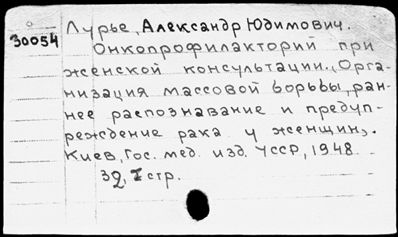 30054 Лурье, Александр Юдимович.
Онкопрофилакторий при
женской консультации. (Орга-
низация массовой борьбы, ран-
нее распознавание и предуп-
реждение рака у женщин).
Киев, Гос. мед. изд. УССР, 1948.
32, I стр.